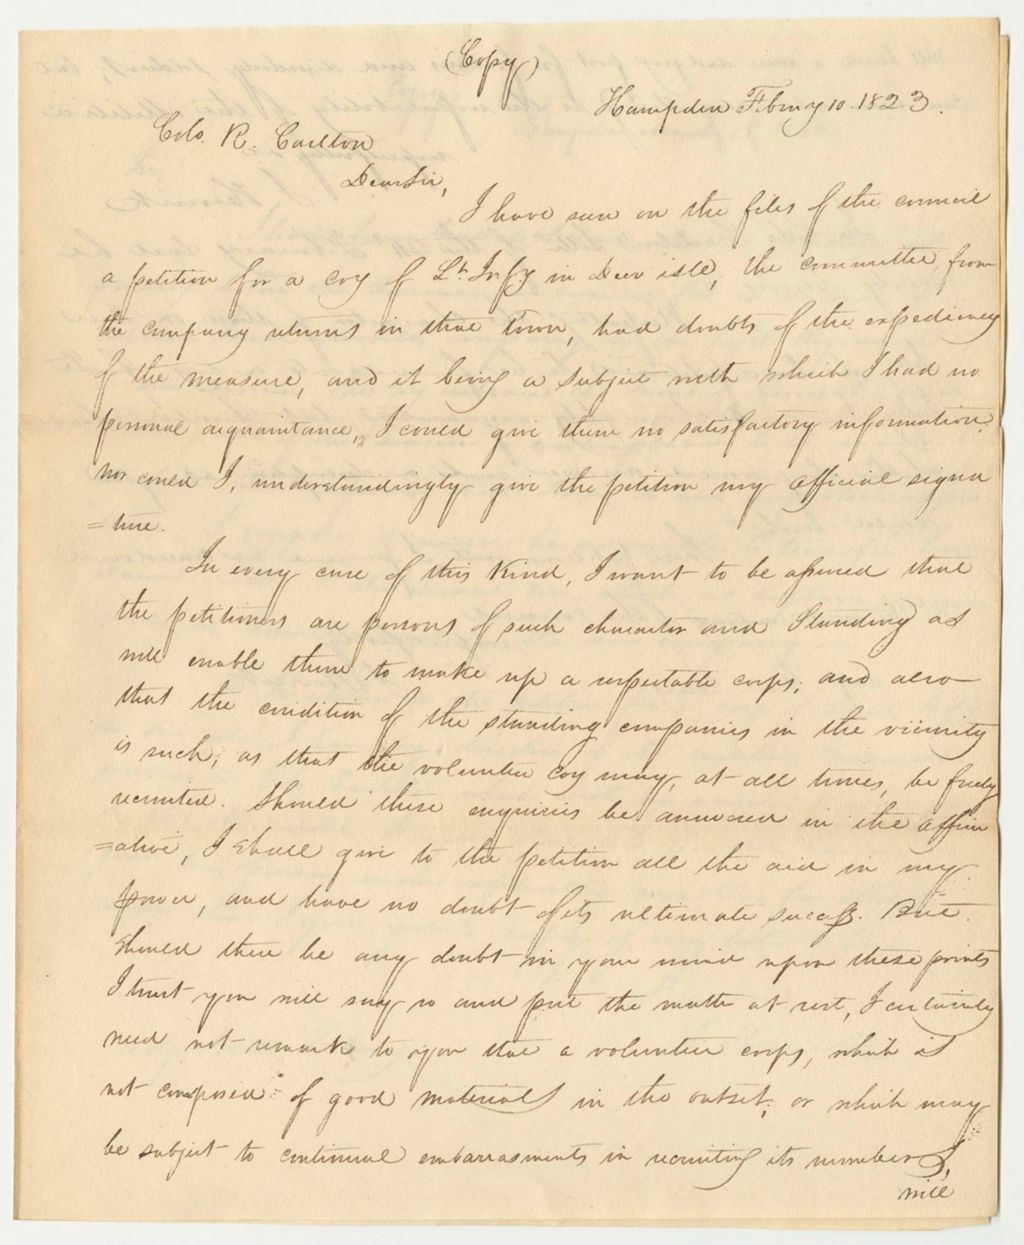 (Copy)
Hampden Febury 10. 1823.
Colo. R. Carlton
Dear Sir,
I have seen on the files of the council
a petition for a coy of Lt. Infy in Deer isle, the committee, from
the company returns in that Town, had doubts of the expediency
of the measure, and it being a subject with which I had no
personal acquaintance, I could give them no satisfactory information.
nor could I, understandingly give the petition my official signa
=ture.
In every case of this kind, I want to be assured that
the petitioners are persons of such character and Standing as
will enable them to make up a respectable corps; and also
that the condition of the standing companies in the vicinity
is such; as that the volunteer coy may, at all times, be freely
recruited. Should these enquiries be answered in the affirm
=ative, I shall give to the petition all the aid in my
power, and have no doubt of its ultimate success. But
should there be any doubt in your mind upon these points
I trust you will say so and put the matter at rest, I certainly
need not remark to you that a volunteer corps, which is
not composed of good materials in the outset; or which may
be subject to continual embarrasments in recruiting its numbers,
will